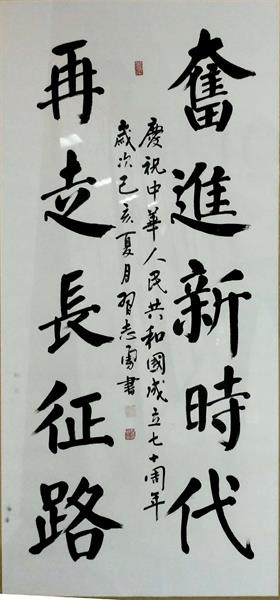 奮進新時代
再走長征路
慶祝中華人民共和國成立七十周年
歲次己亥夏月習志勇書